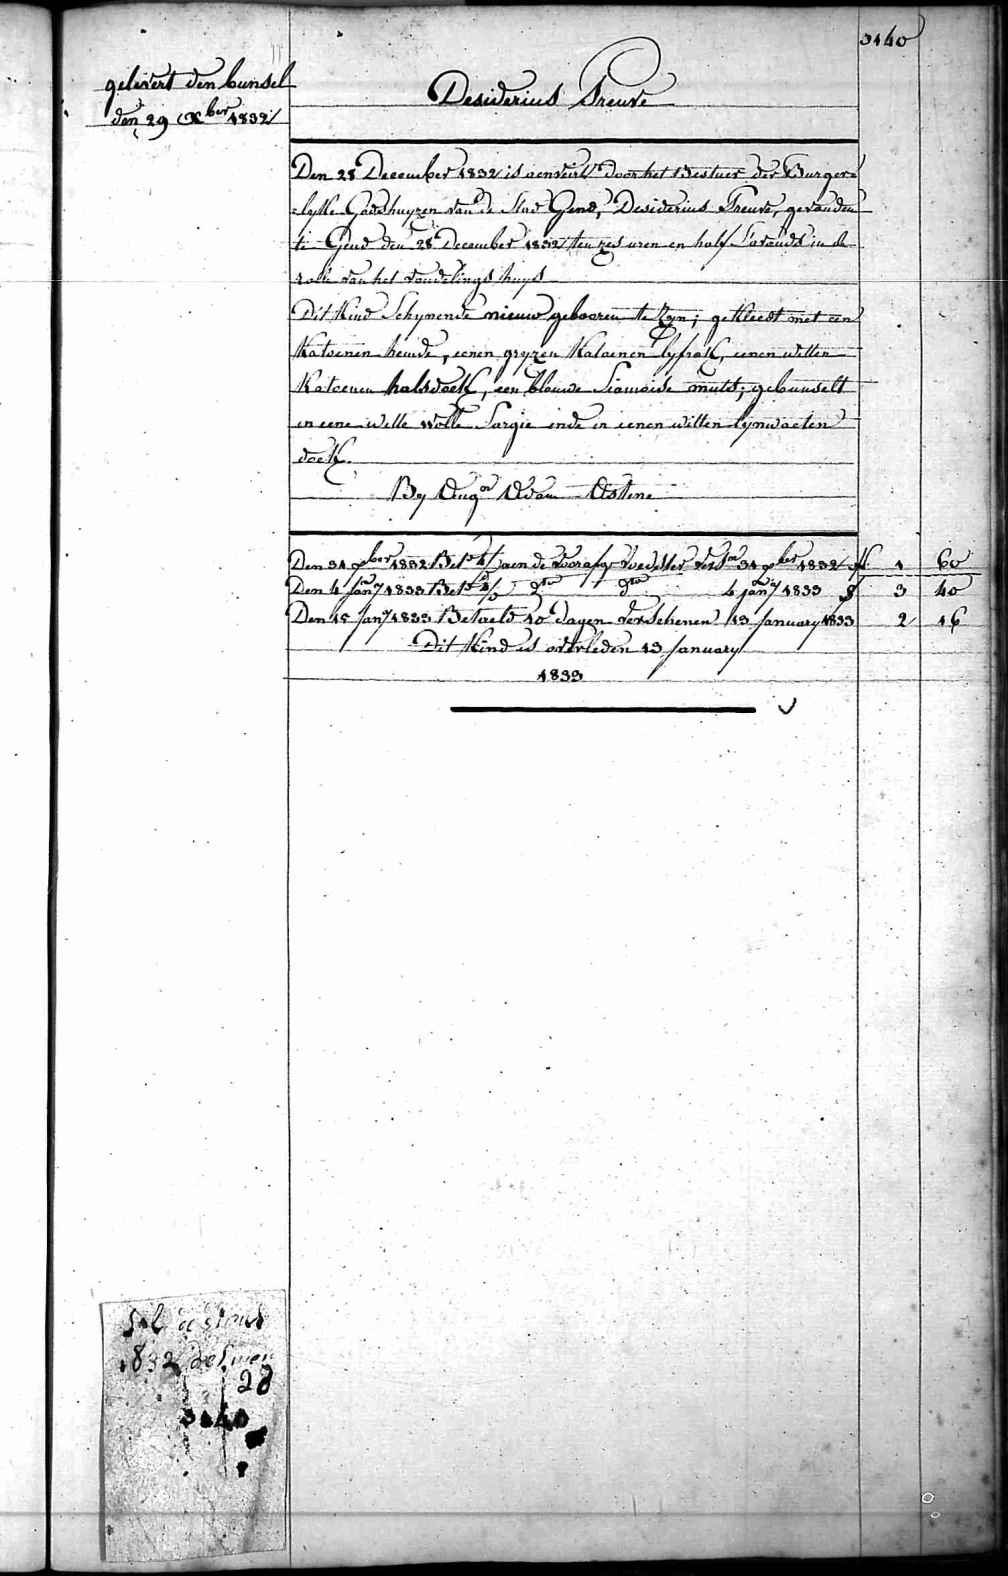 3140
gelevert den bunsel
den 29 Xber 1832
Desiderius Preuve
Den 28 December 1832 is aenveirt door het Bestuer der Burger=
=lyke Godshuyzen van de Stad Gend, Desiderius Preuve, gevonden
te Gend den 28 December 1832 ten zes uren en half s'avonds in de
rolle van het vondelings huys
Dit Kind Schynende nieuw gebooren te zyn; gekleedt met een
Katoenen hemde, eenen gryzen Katoenen lyfrok, eenen witten
Katoenen halsdoek, een blauwe Siamoise muts; gebunselt
in eene witte wolle Sargie ende in eenen witten lynwaeten
doek.
By Adam Ostene
Den 31 Xber 1832 Bet aen de voorafge voedster vers 31 Xber 1832 f 1 60
Den 4 Jany 1833 Bet dto dto 4 jany 1833 3 40
Den 15 Jany 1833 Betaeld 10 dagen verschenen 13 January 1833 2 16
Dit Kind is overleden 13 January
1833
1832
28
3140